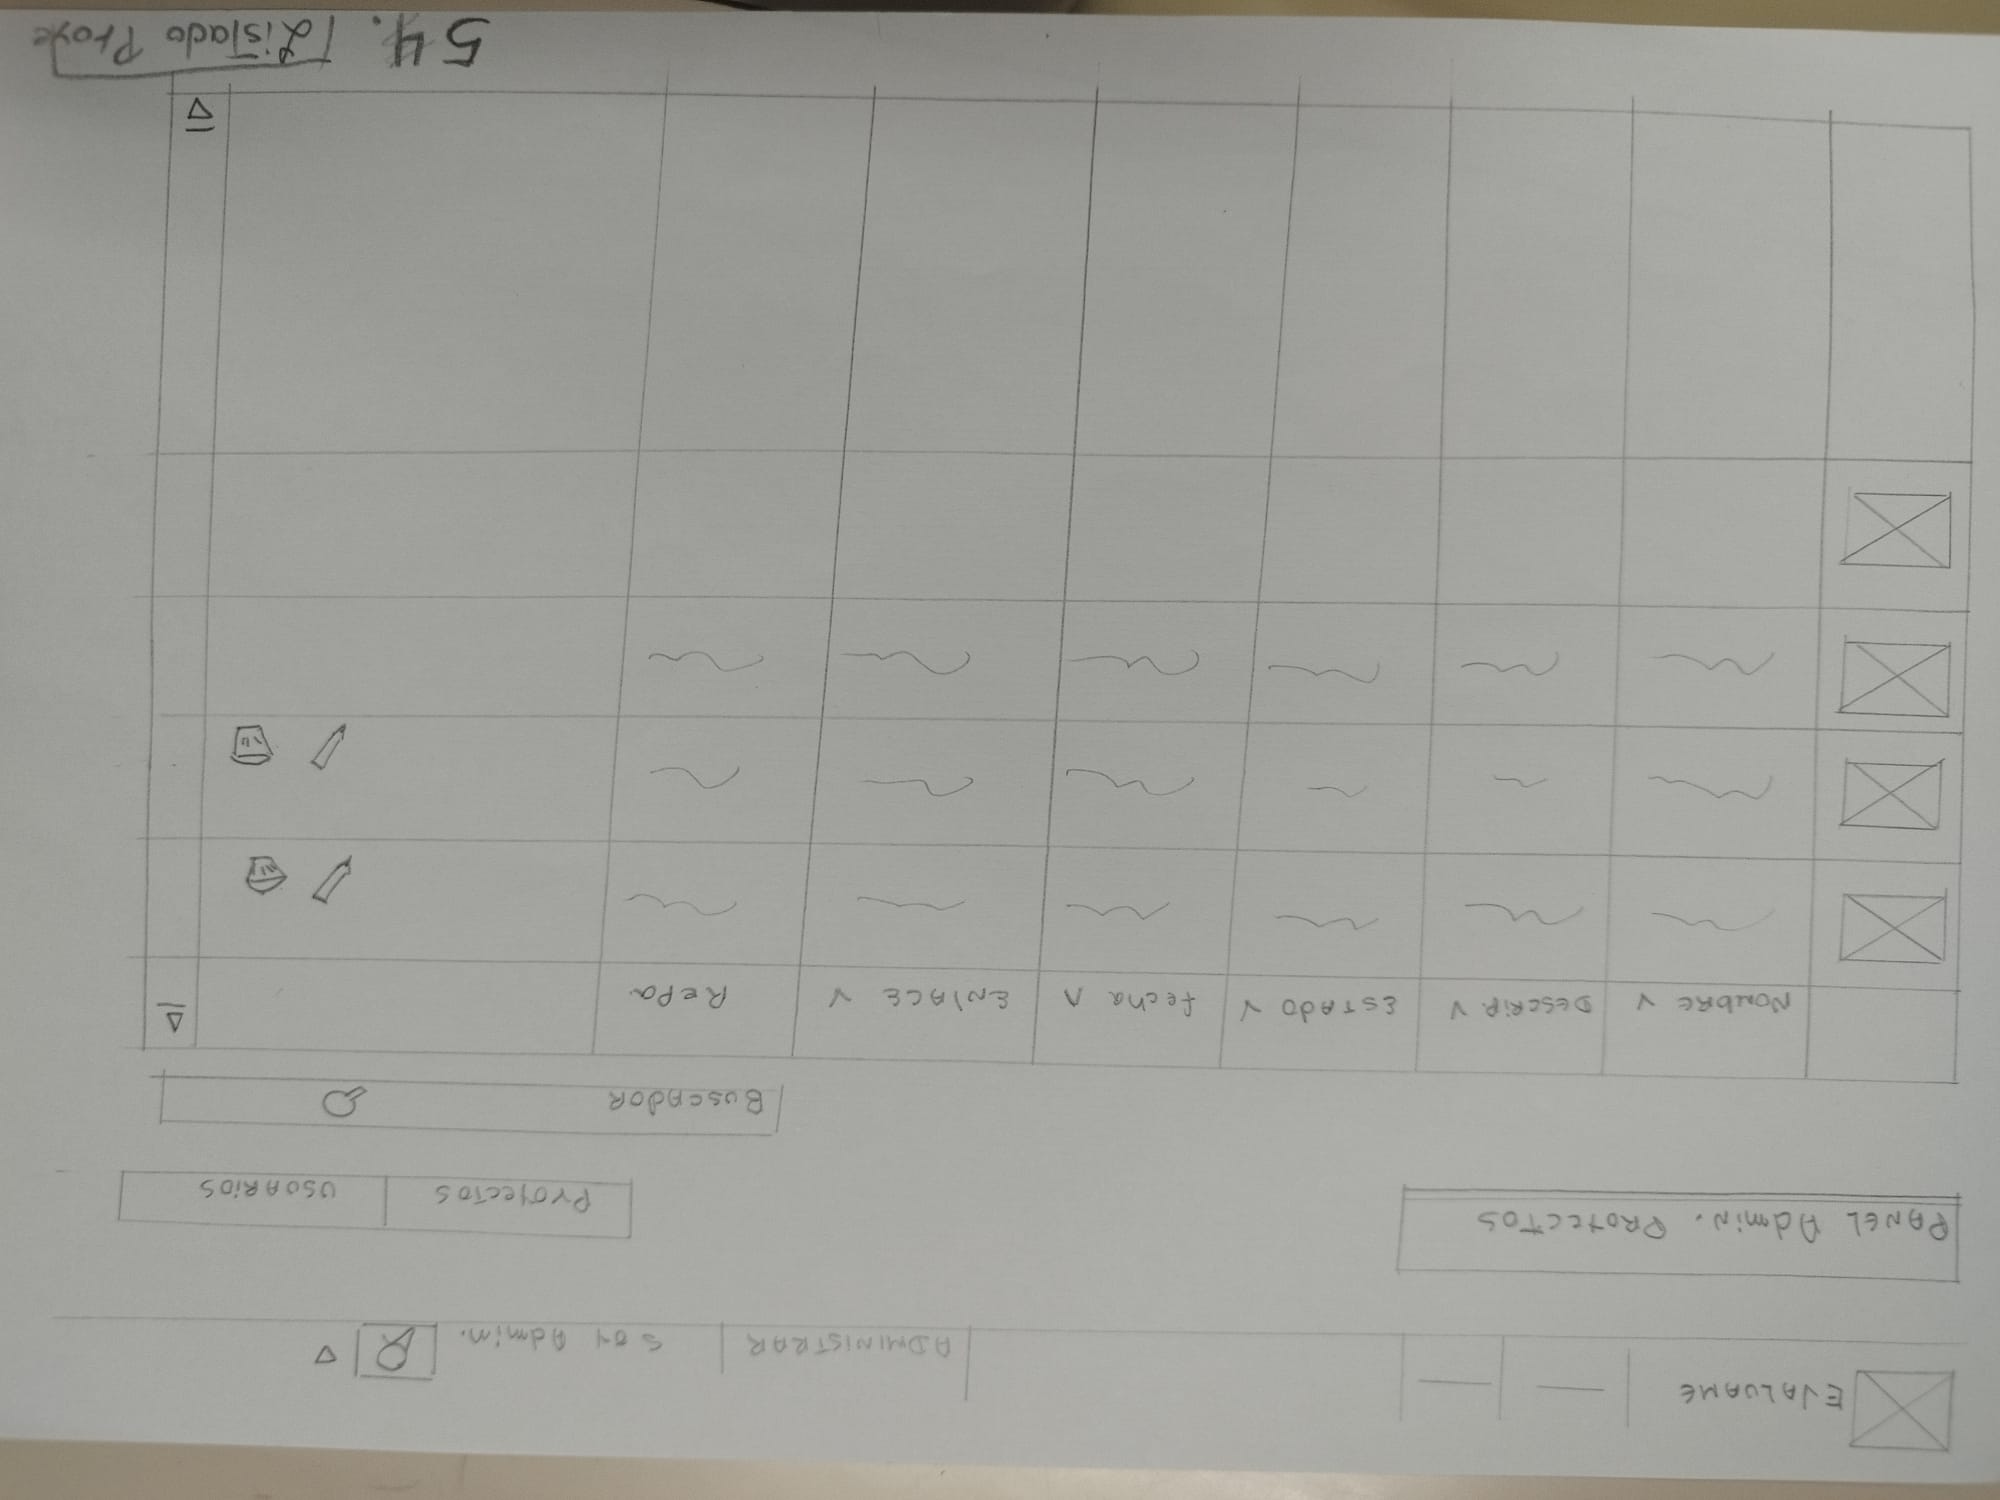 EVALUAME
ADMINISTRAR
Soy Admin.
PANEL Admin. PROYECTOS
PROYECTOS
USUARIOS
BUSCADOR
NOMBRE
DESCRIP.
ESTADO
fecha
ENLACE
REPA
54. Listado Proye